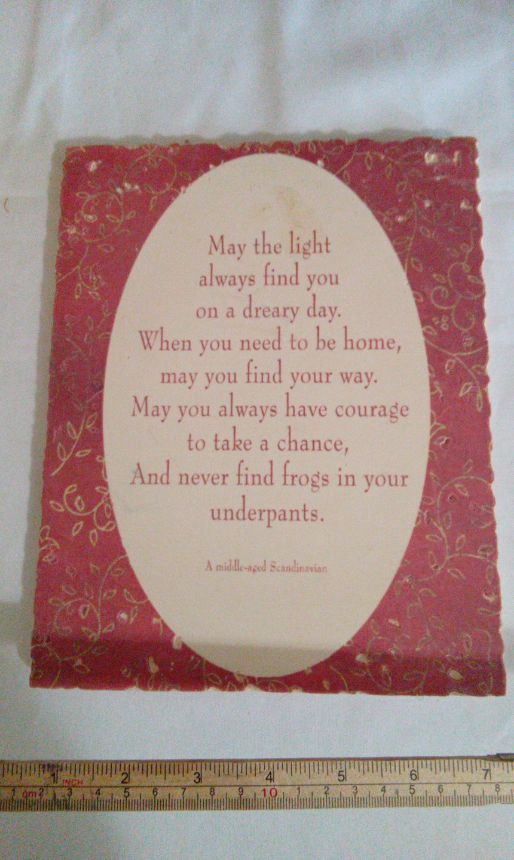 May the light
always find you
on a dreary day.
When you need to be home,
may you find your way.
May you always have courage
to take a chance,
And never find frogs in your
underpants.
A middle-aged Scandinavian
1 INCH 2 3 4 5 6 7
1 cm 2 3 4 5 6 7 8 9 10 1 2 3 4 5 6 7 8